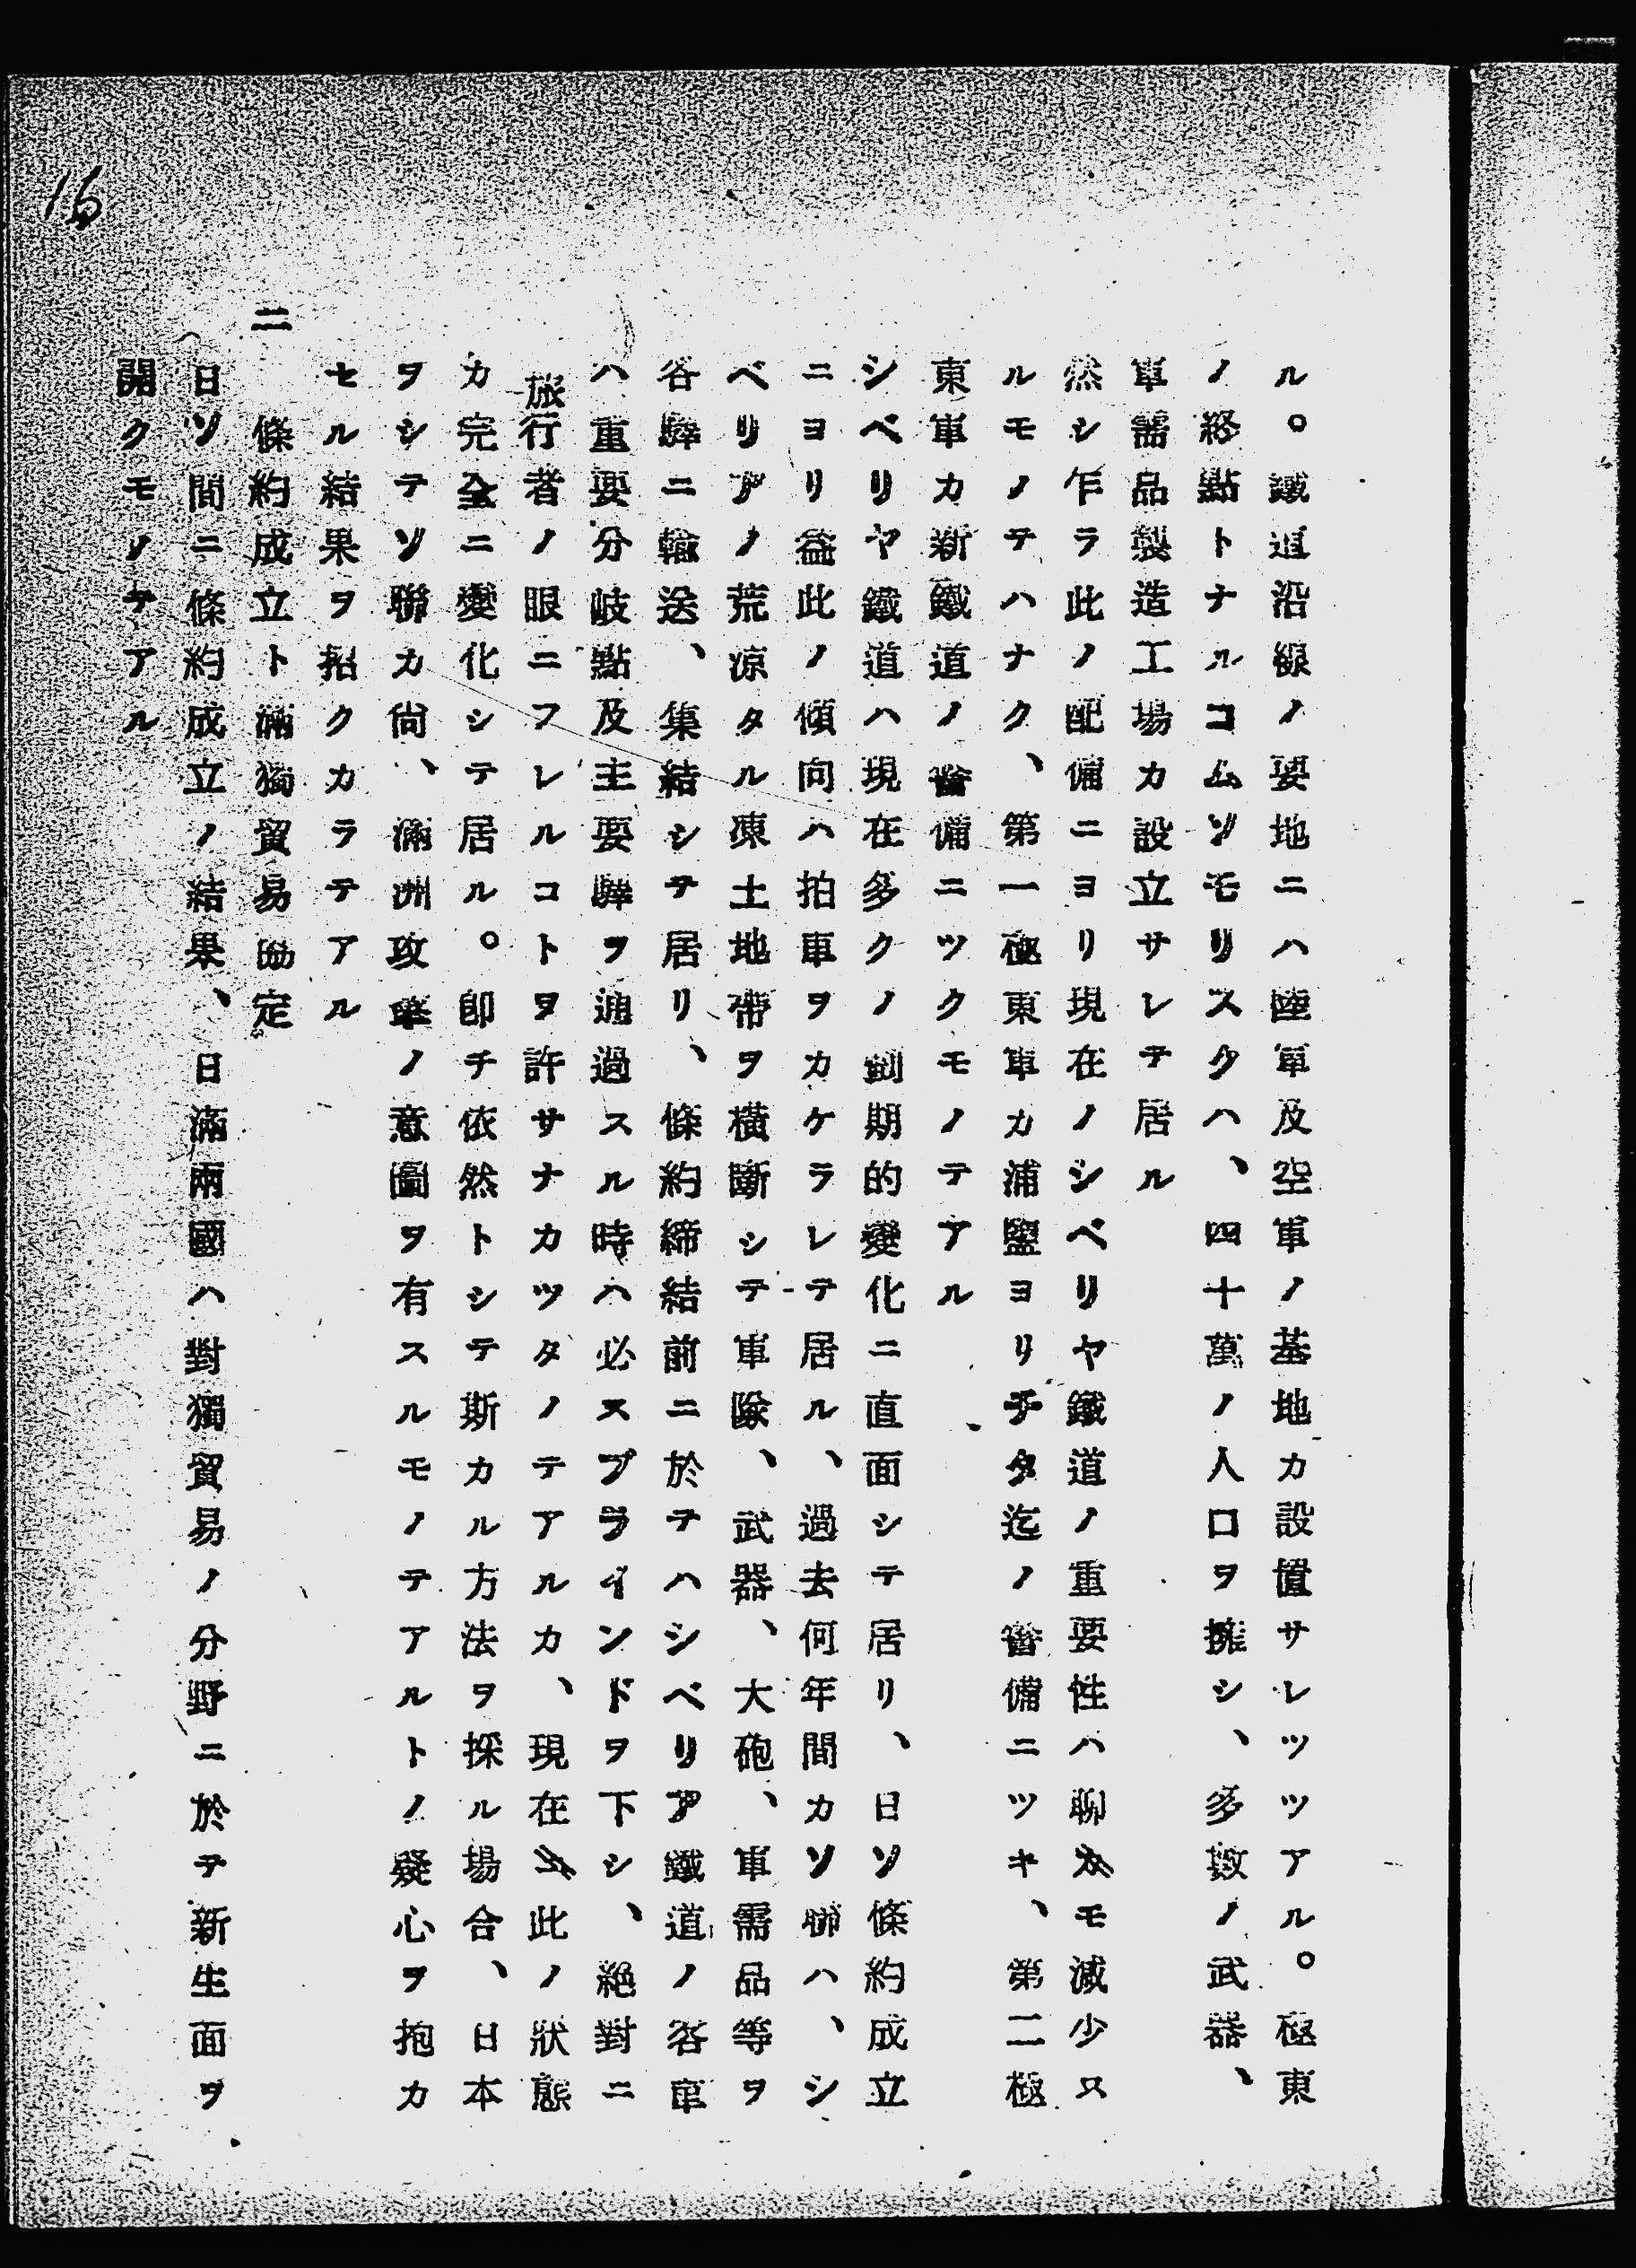 ル。鐵道沿線ノ要地ニハ陸軍及空軍ノ基地カ設置サレツツアル。極東
ノ終點トナルコムソモリスクハ、四十萬ノ人口ヲ擁シ、多数ノ武器、
軍需品製造工場カ設立サレテ居ル
然シ乍ラ此ノ配備ニヨリ現在ノシベリヤ鐵道ノ重要性ハ聊カモ減少ス
ルモノテハナク、第一極東軍カ浦鹽ヨリチタ迄ノ警備ニツキ、第二極
東軍カ新鐵道ノ警備ニツクモノテアル
シベリヤ鐵道ハ現在多クノ劃期的變化ニ直面シテ居リ、日ソ條約成立
ニヨリ益此ノ傾向ハ拍車ヲカケラレテ居ル、過去何年間カソ聯ハ、シ
ベリアノ荒涼タル凍土地帶ヲ橫斷シテ軍隊、武器、大砲、軍需品等ヲ
各驛ニ輸送、集結シテ居リ、條約締結前ニ於テハシベリア鐵道ノ客車
ハ重要分岐點及主要驛ヲ通過スル時ハ必スブラインドヲ下シ、絕對ニ
旅行者ノ眼ニフレルコトヲ許サナカツタノテアルカ、現在此ノ狀態
カ完全ニ變化シテ居ル。卽チ依然トシテ斯カル方法ヲ採ル場合、日本
ヲシテソ聯カ尙、滿洲攻擊ノ意圖ヲ有スルモノテアルトノ疑心ヲ抱カ
セル結果ヲ招クカラテアル
二 條約成立ト滿獨貿易協定
日ソ間ニ條約成立ノ結果、日滿兩國ハ對獨貿易ノ分野ニ於テ新生面ヲ
開クモノテアル
16